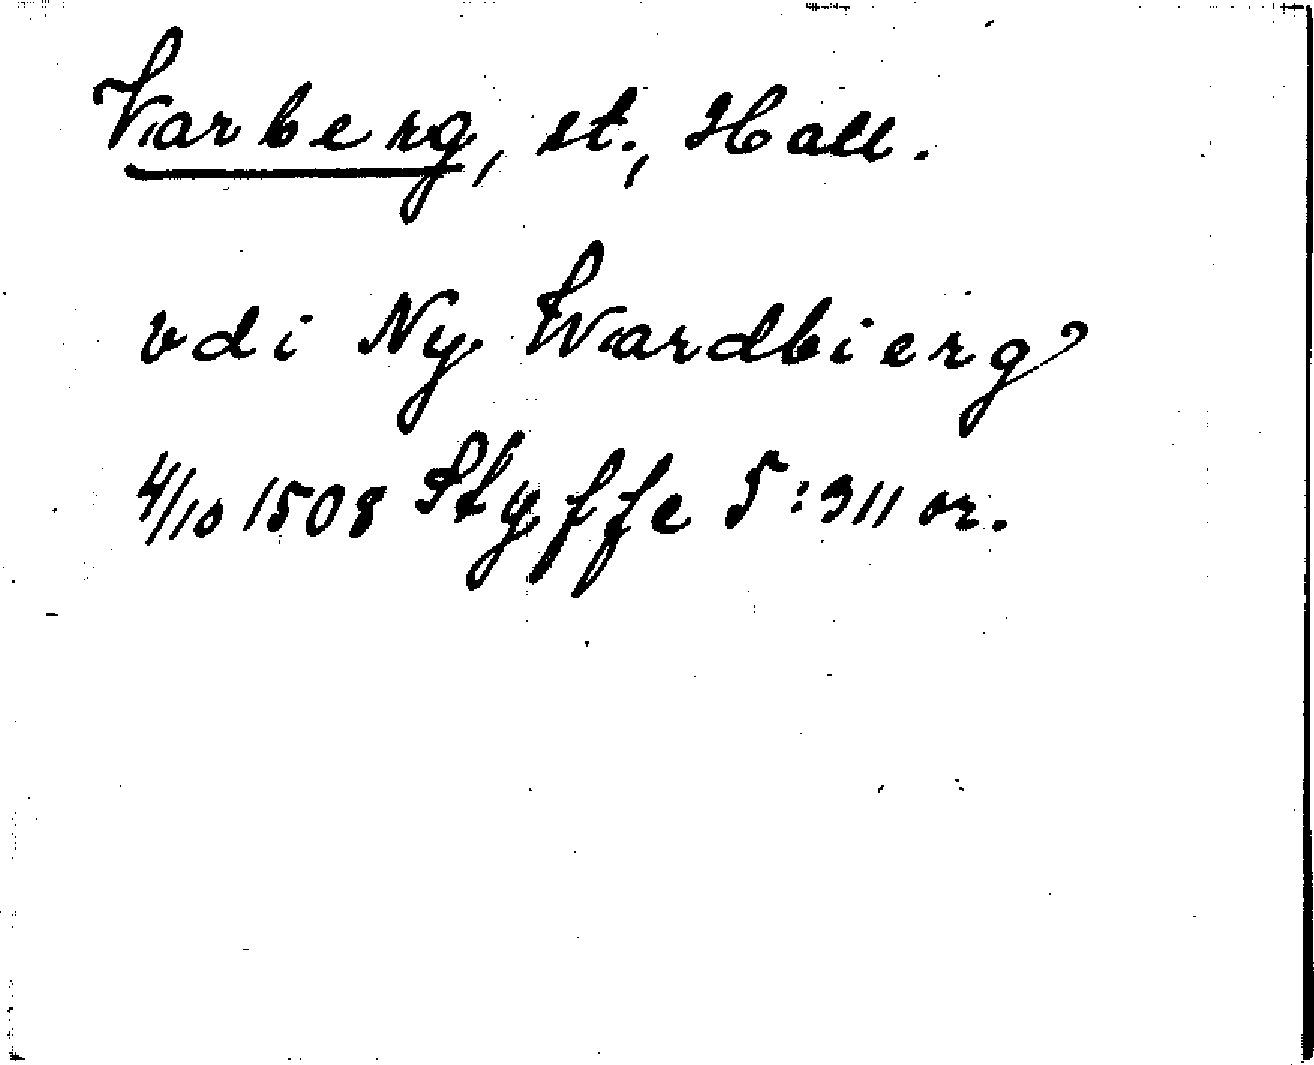 Varberg, st., Hall.
vdi Ny Wardbierg
4/10 1508 Styffe 5:311 or.